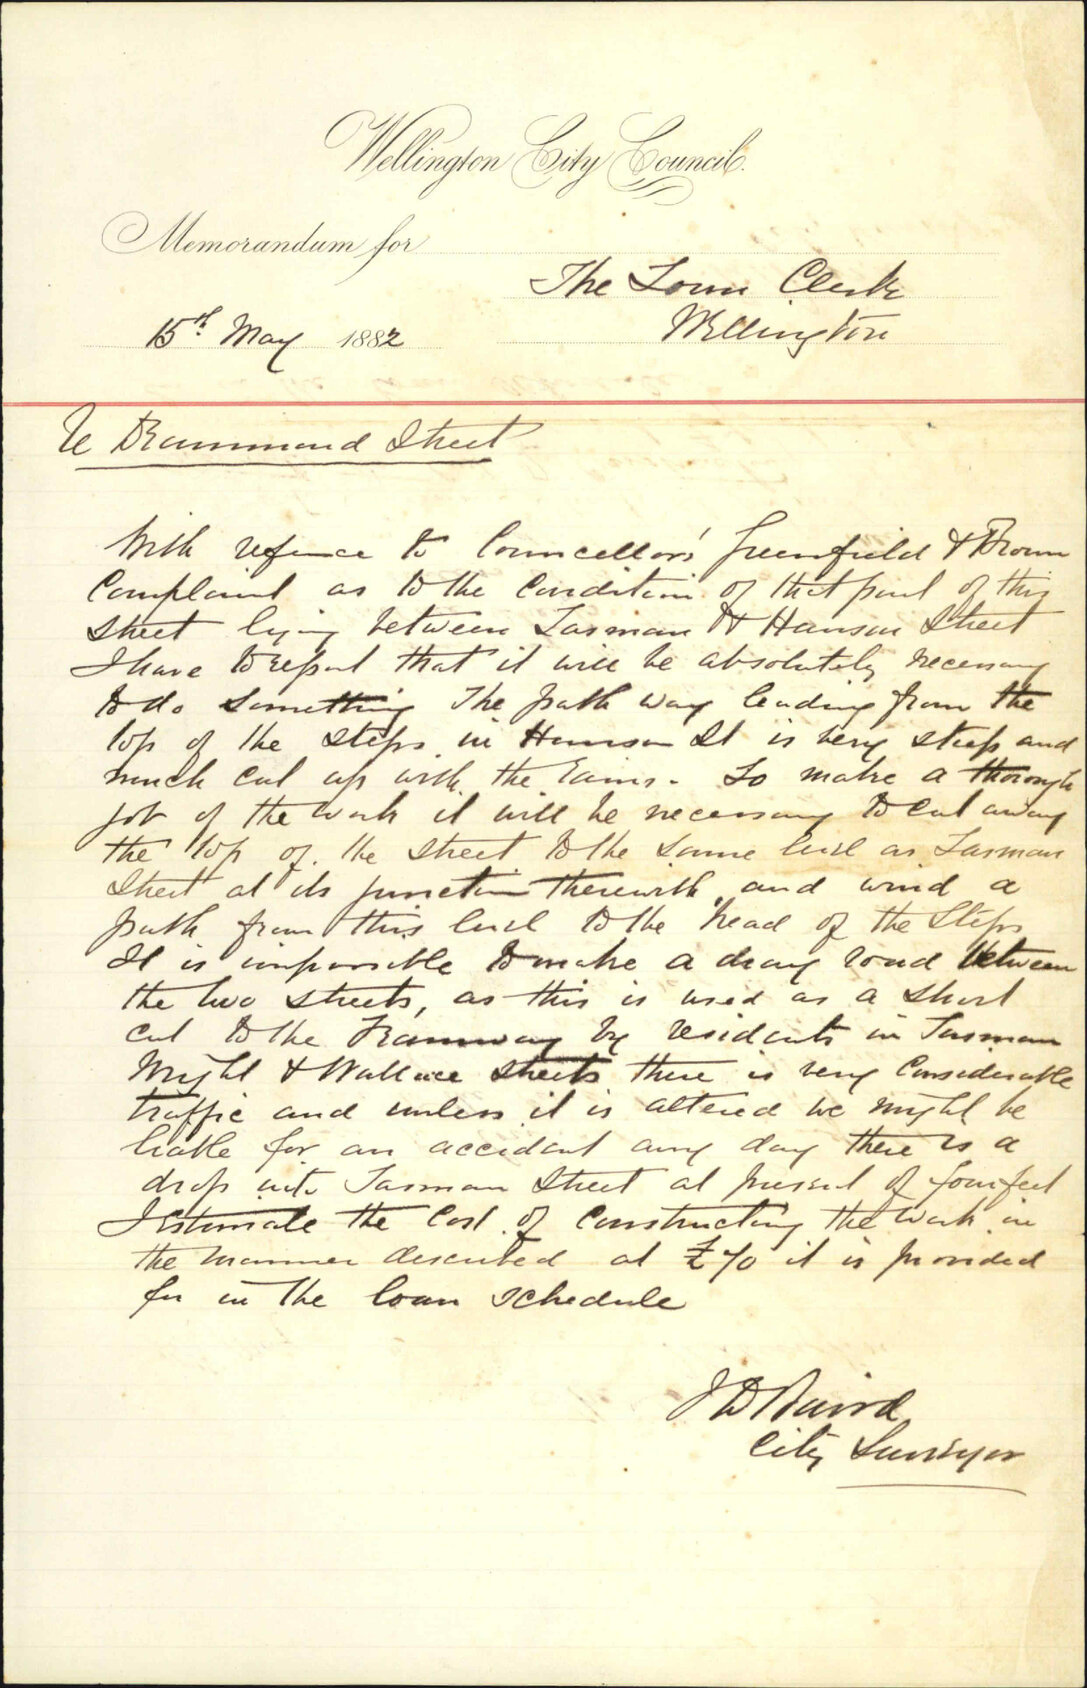 Wellington City Council.
Memorandum for
The Town Clerk
15th May 1882
Wellington
Re Drummond Street
With refrence to Councellors' Greenfield & Brown
Complaint as to the Condition of that part of this
Street lying between Tasman St & Hanson Street
I have to report that it will be absolutely necessary
to do something The path way leading from the
top of the steps in Hanson St is very steep and
much cut up with the rains. To make a thorough
job of the work it will be necessary to cut away
the top of the street to the same level as Tasman
Street at its junction therewith and wind a
path from this level to the head of the Steps
It is impossible to make a dray road between
the two streets, as this is used as a short
cut to the Tramway by residents in Tasman
Wright & Wallace Streets there is very Considerable
traffic and unless it is altered we might be
liable for an accident any day there is a
drop into Tasman Street at present of four feet
I Estimate the Cost of Constructing the work in
the manner described at £70 it is provided
for in the loan schedule
J D Baird
City Surveyor